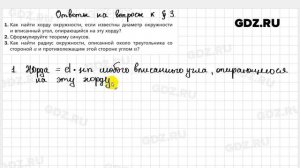 Ответы на вопросы к § 3.
GDZ.RU
1. Как найти хорду окружности, если известны диаметр окружности
и вписанный угол, опирающийся на эту хорду?
2. Сформулируйте теорему синусов.
3. Как найти радиус окружности, описанной около треугольника со
стороной a и противолежащим этой стороне углом α?
1. Хорда = d · sin любого вписанного угла, опирающегося
на эту хорду.
GDZ.RU